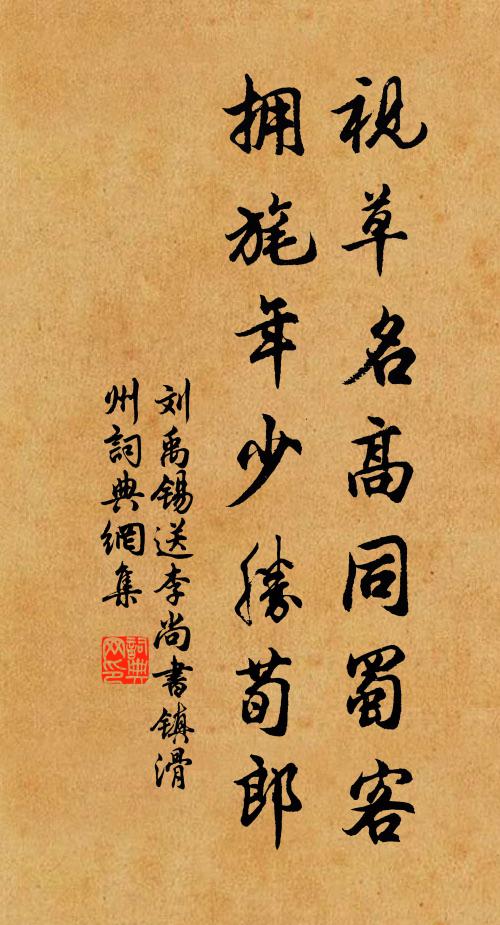 视草名高同蜀客
拥旄年少勝荀郎
刘禹锡送李尚書镇滑
州詞典網集
詞典
网印